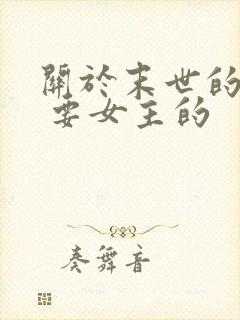 關於末世的
要女主的
奏舞音